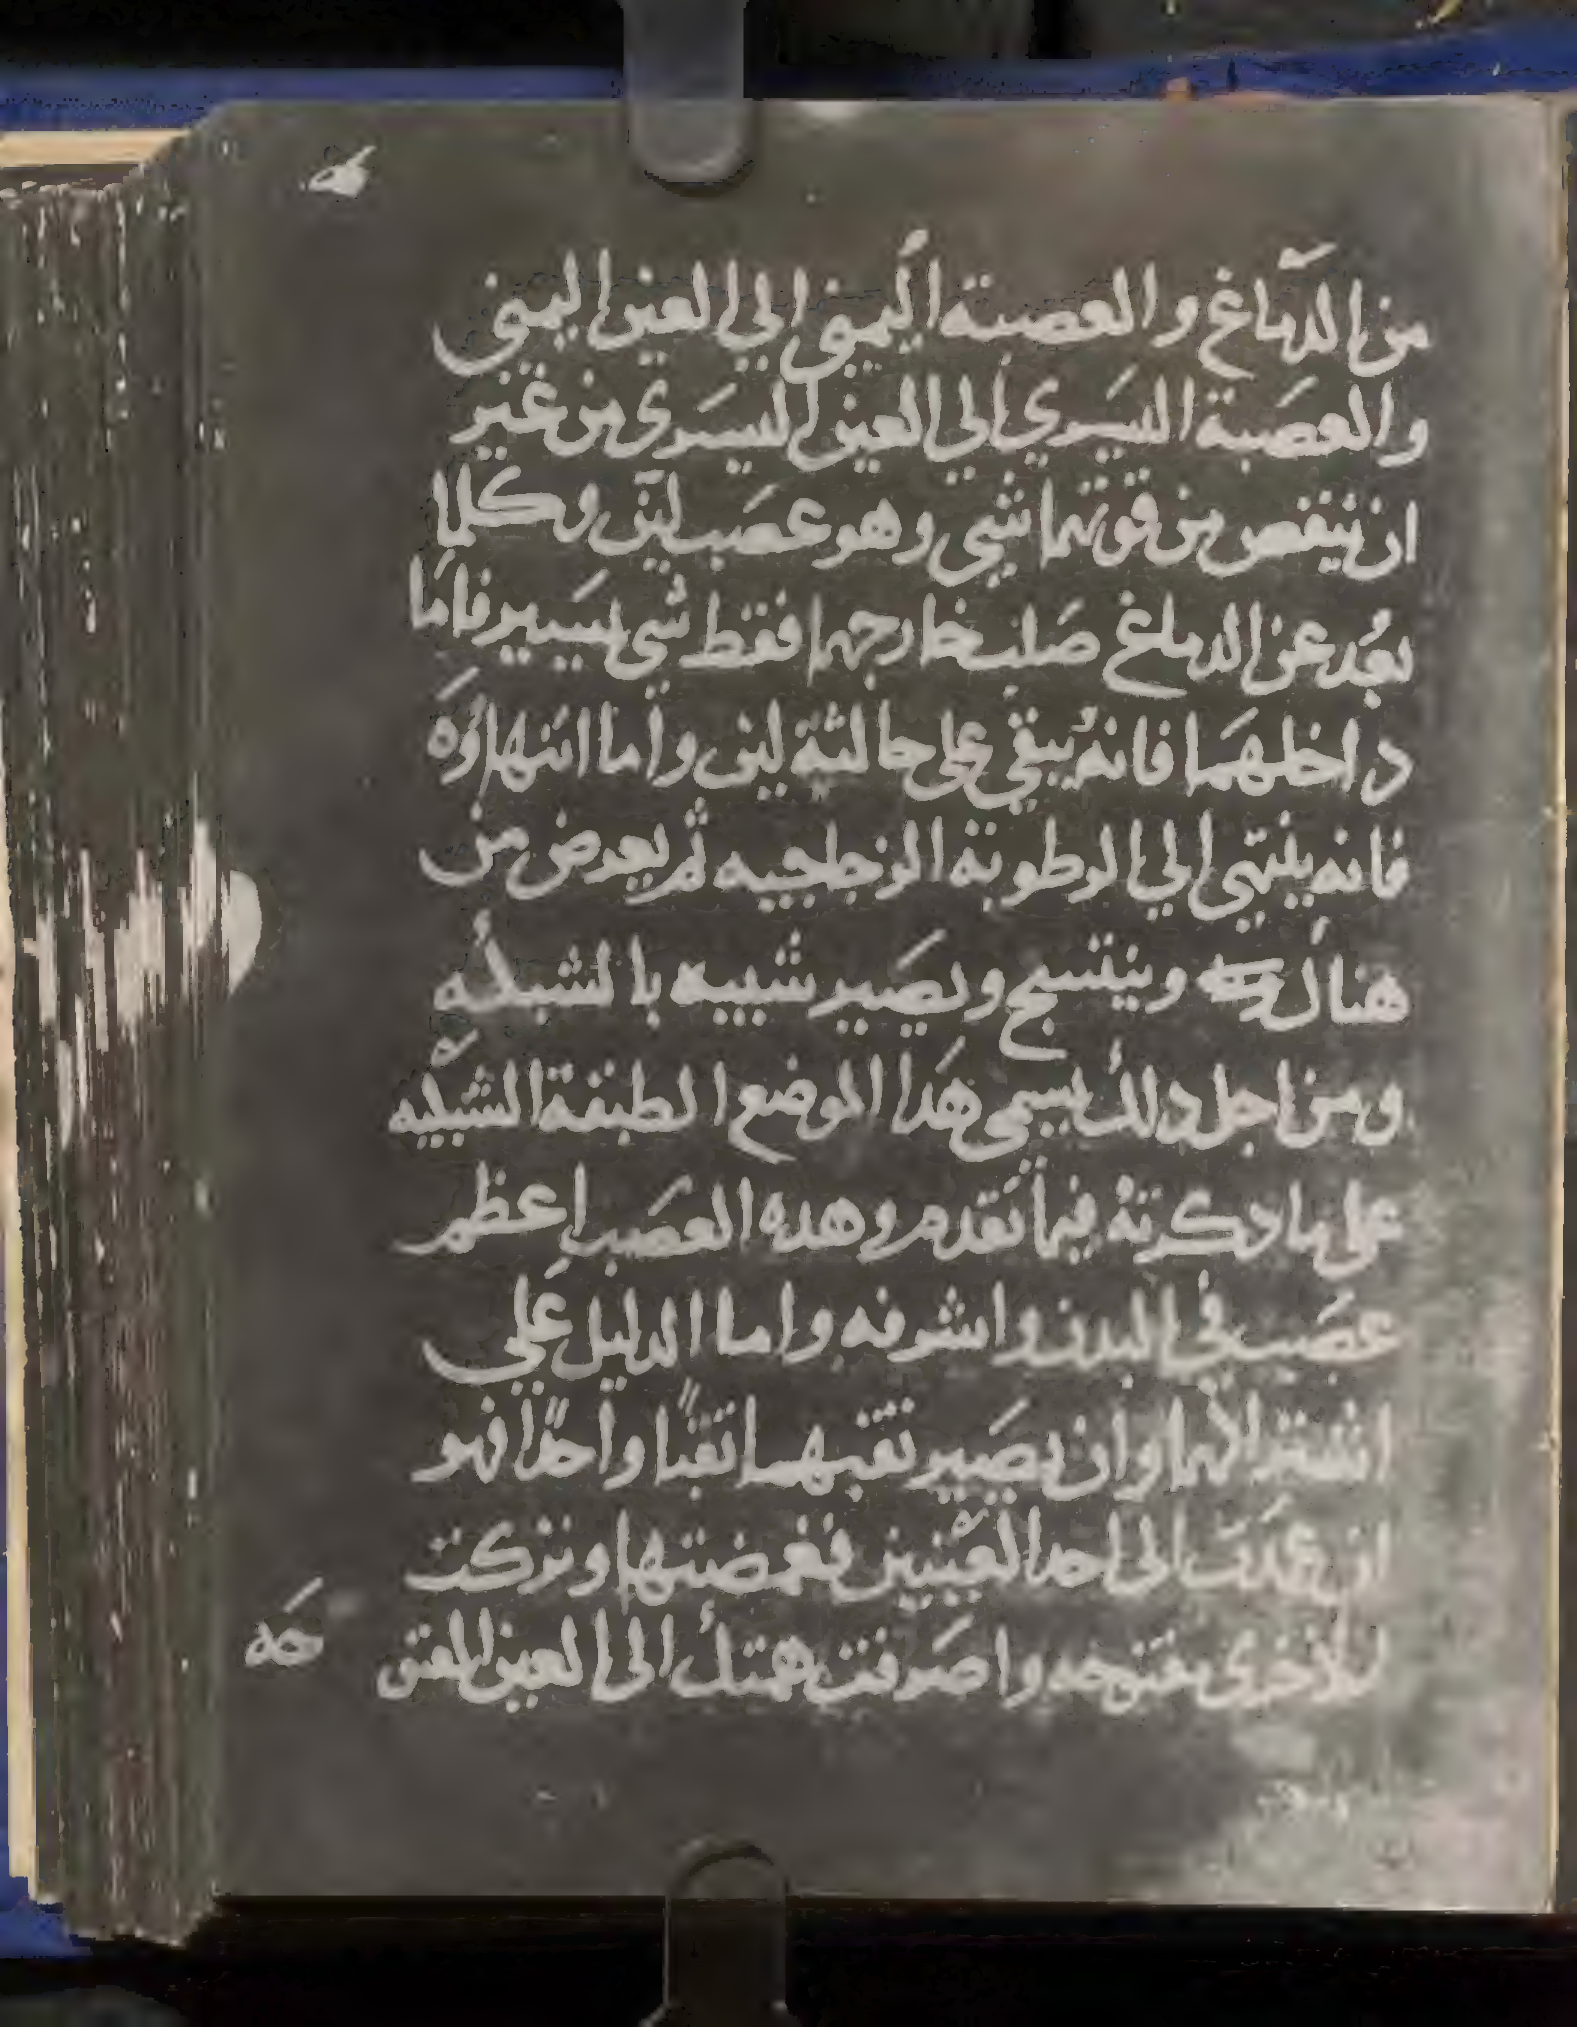 من الدماغ والعصبة اليمنى الي العين اليمنى
والعصبة اليسري الي العين اليسري من غير
ان ينقص من قوتهما شي وهو عصب لين وكلما
بعد عن الدماغ صلب خارجهما فقط شي يسير فاما
داخلهما فانه يبقي علي حالته لين واما انتهاؤه
فانه ينتهي الي الرطوبة الزجاجيه ثم يعرض من
هناك وينتسج ويصير شبيه بالشبكه
ومن اجل دلك يسمى هدا الموضع الطبقة الشبكيه
على ما دكرته فيما تقدم وهده العصب اعظم
عصب في البدن واشرفه واما الدليل علي
اشتراكهما وان يصير ثقبهما ثقبا واحدا فهو
ان عمدت الى احد العينين فغمضتها وتركت
الاخرى مفتوحه واصرفت همتك الى العين المفتو
حه